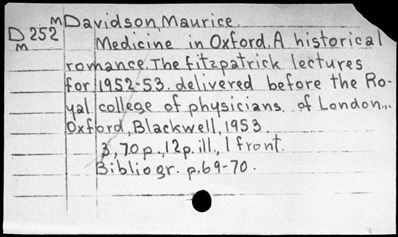 M Davidson, Maurice.
D 252 Medicine in Oxford. A historical
M romance. The fitzpatrick lectures
for 1952-53. delivered before the Ro-
yal college of physicians of London...
Oxford, Blackwell, 1953.
3, 70 p., 12 p. ill., 1 front.
Bibliogr. p. 69-70.